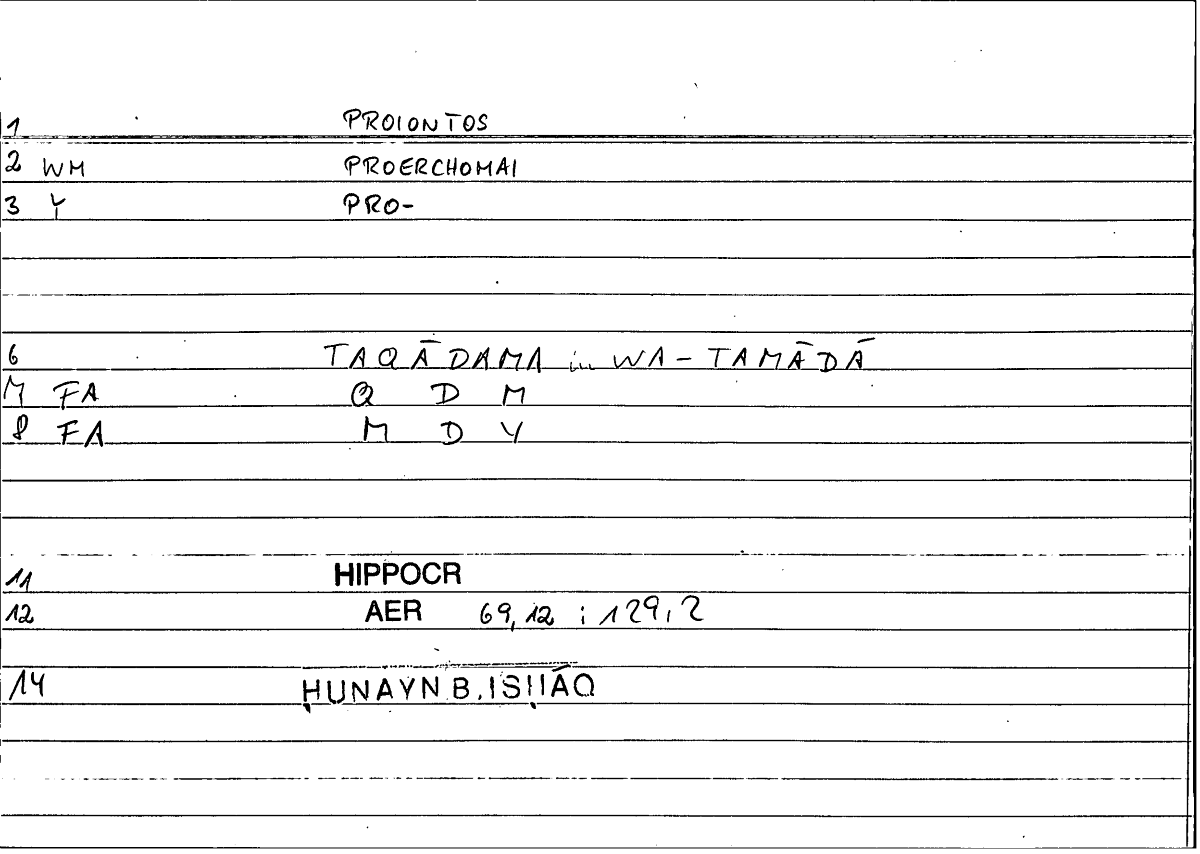 1 PROIONTOS
2 WM PROERCHOMAI
3 Y PRO-
6 TAQĀDAMA in WA-TAMĀDĀ
7 FA Q D M
8 FA M D Y
11 HIPPOCR
12 AER 69,12 ; 129,2
14 ḤUNAYN B. ISḤĀQ